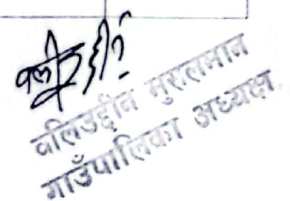 वलिउद्दीन मुसलमान
गाउँपालिका अध्यक्ष